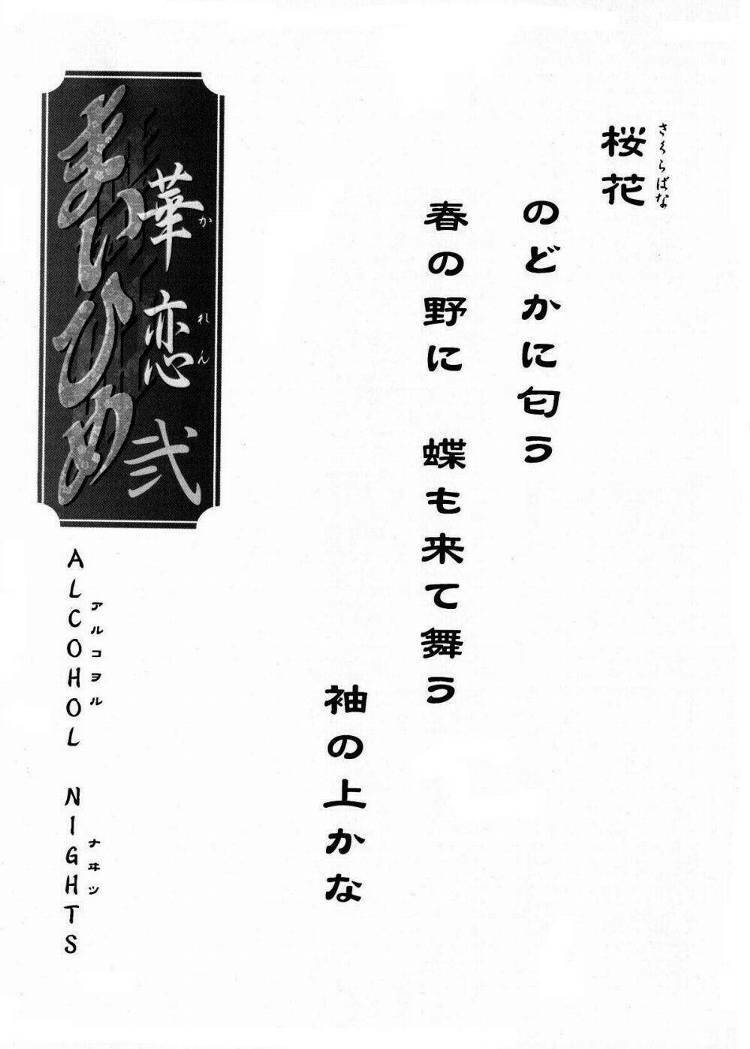 桜花
さくらばな
のどかに匂う
春の野に 蝶も来て舞う
袖の上かな
華恋 弐
かれん
まいひめ
ALCOHOL NIGHTS
アルコヲル ナヰツ